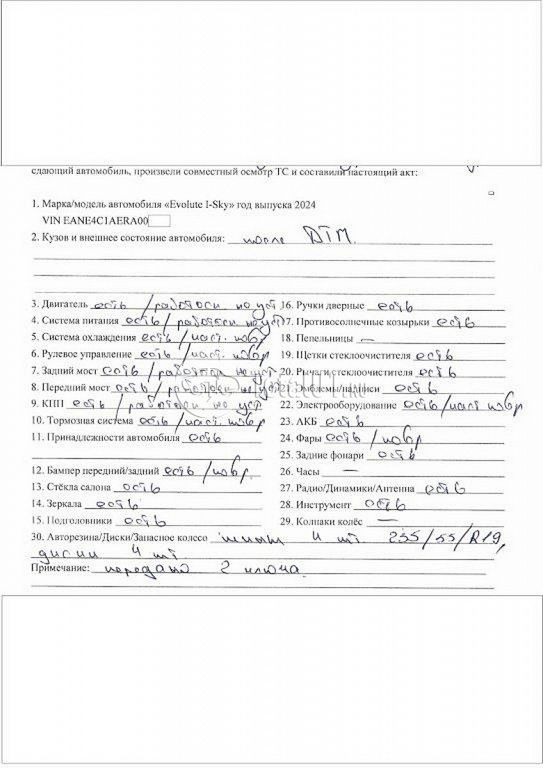 сдающий автомобиль, произвели совместный осмотр ТС и составили настоящий акт:
1. Марка/модель автомобиля «Evolute I-Sky» год выпуска 2024
VIN EANE4C1AERA00
2. Кузов и внешнее состояние автомобиля: после ДТП.
3. Двигатель есть / работосп не уст
4. Система питания есть / работосп не уст
5. Система охлаждения есть / част. повр
6. Рулевое управление есть / част. повр
7. Задний мост есть / работосп не уст
8. Передний мост есть / работосп не уст
9. КПП есть / работосп. не уст
10. Тормозная система есть / част. повр
11. Принадлежности автомобиля есть
12. Бампер передний/задний есть / повр.
13. Стёкла салона есть
14. Зеркала есть
15. Подголовники есть
16. Ручки дверные есть
17. Противосолнечные козырьки есть
18. Пепельницы —
19. Щетки стеклоочистителя есть
20. Рычаги стеклоочистителя есть
21. Эмблемы/надписи есть
22. Электрооборудование есть / част повр
23. АКБ есть
24. Фары есть / повр
25. Задние фонари есть
26. Часы —
27. Радио/Динамики/Антенна есть
28. Инструмент есть
29. Колпаки колёс —
30. Авторезина/Диски/Запасное колесо шины 4 шт. 235/55/R19,
диски 4 шт.
Примечание: передано 2 ключа.